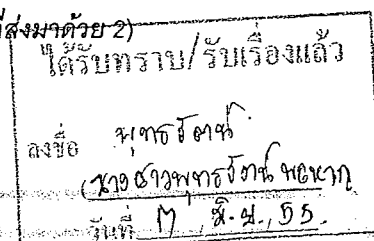 ที่ส่งมาด้วย 2)
ได้รับทราบ/รับเรื่องแล้ว
ลงชื่อ พุทธรัตน์
(นางสาวพุทธรัตน์
วันที่ ๗ มิ.ย. 55.